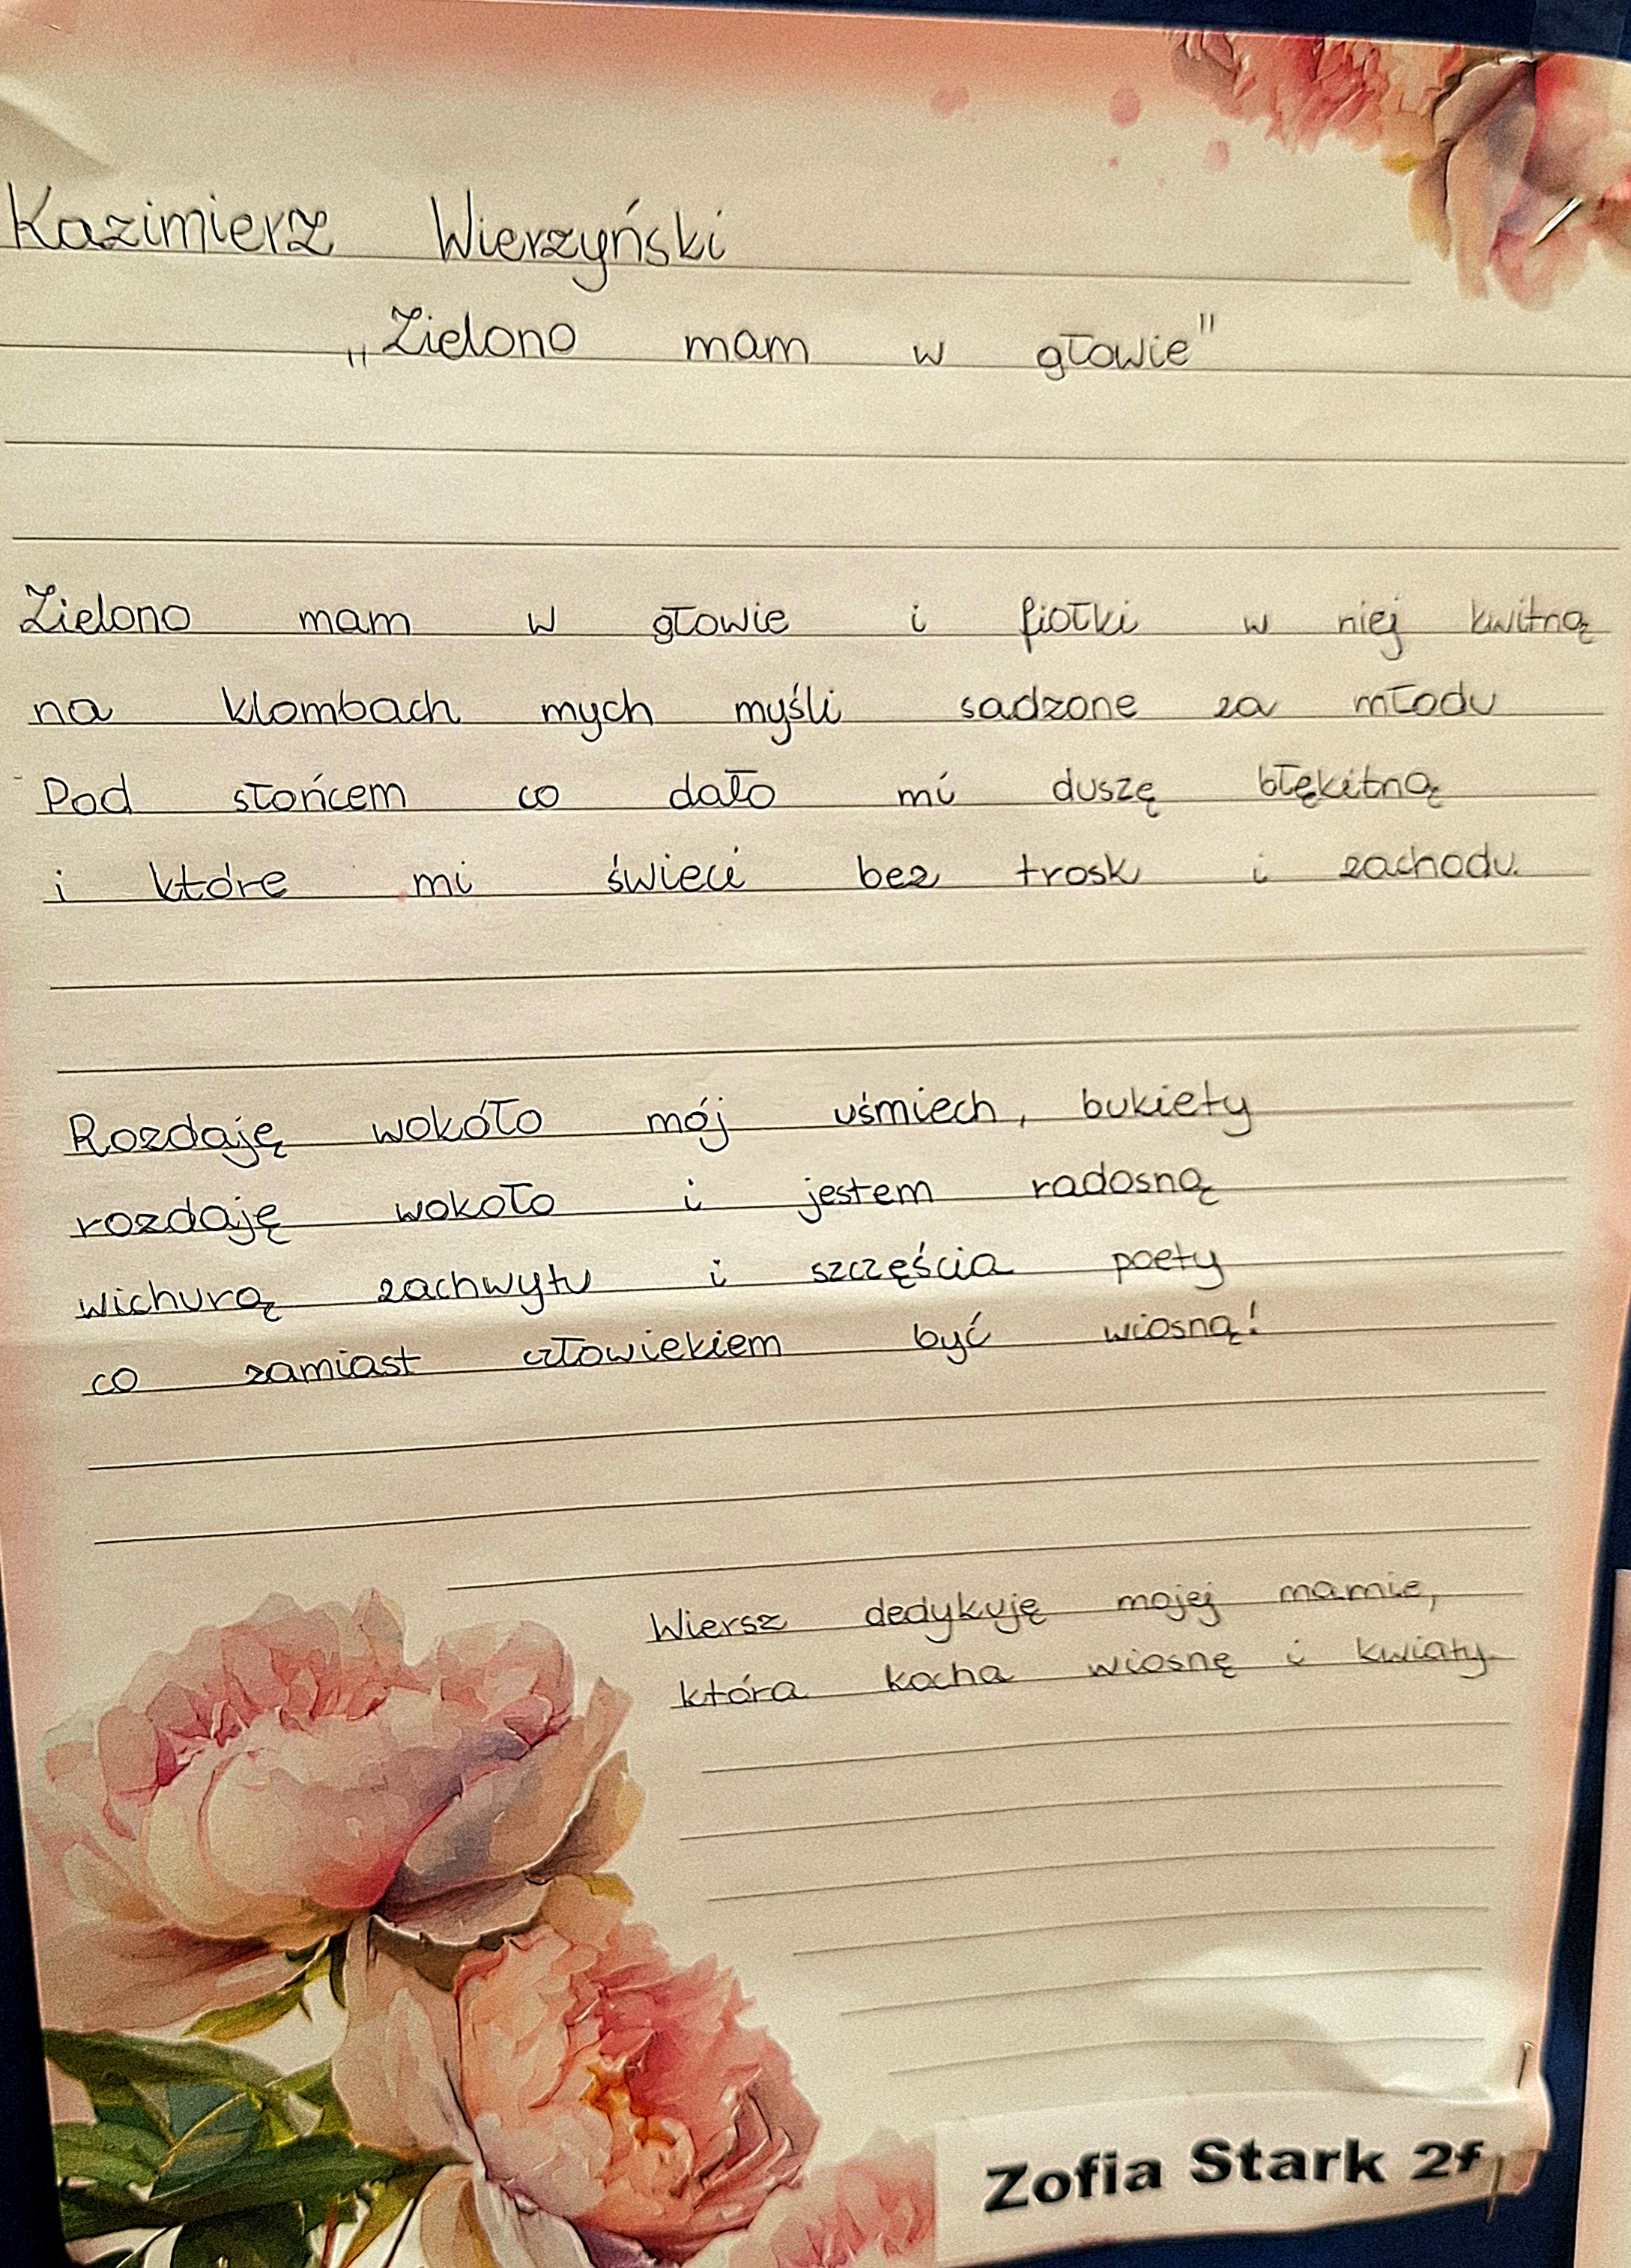 Kazimierz Wierzyński
„Zielono mam w głowie"
Zielono mam w głowie i fiołki w niej kwitną
na klombach mych myśli sadzone za młodu
Pod słońcem co dało mi duszę błękitną
i które mi świeci bez trosk i zachodu.
Rozdaję wokóło mój uśmiech, bukiety
rozdaję wokoło i jestem radosną
wichurą zachwytu i szczęścia poety
co zamiast człowiekiem być wiosną!
Wiersz dedykuję mojej mamie,
która kocha wiosnę i kwiaty.
Zofia Stark 2f